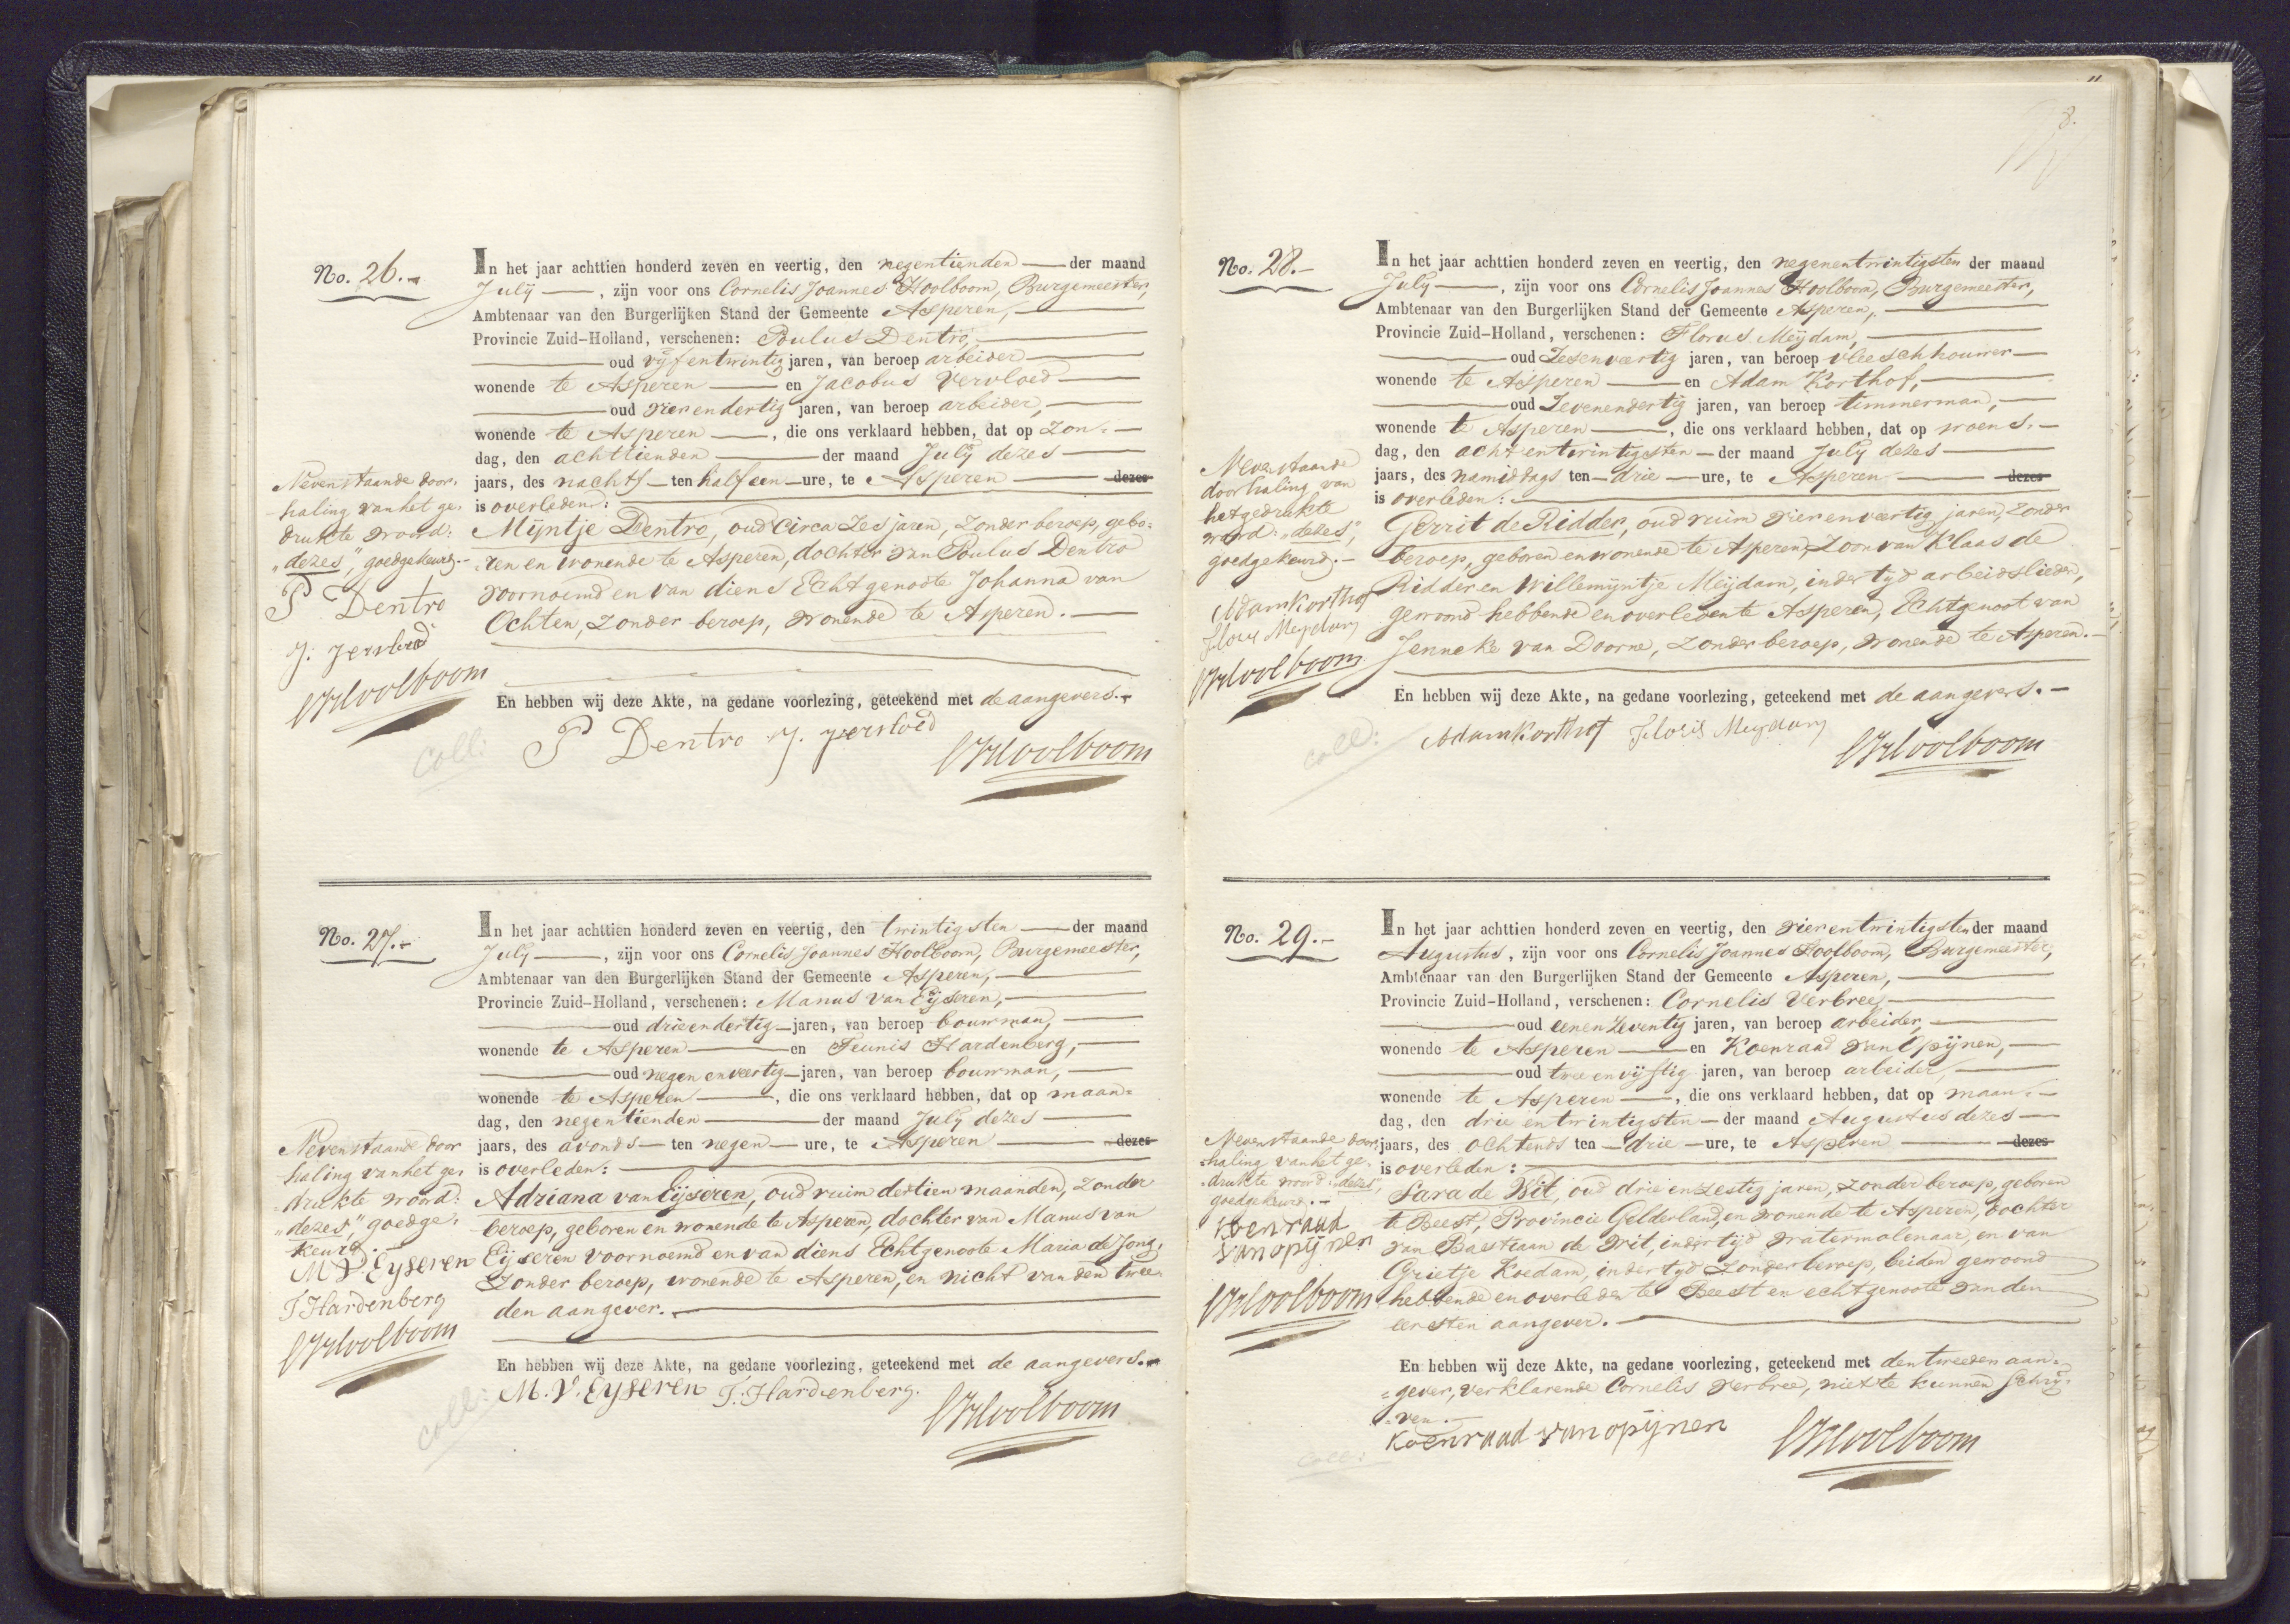 No. 26.-
In het jaar achttien honderd zeven en veertig, den negentienden der maand
July, zijn voor ons Cornelis Joannes Hoolboom, Burgemeester,
Ambtenaar van den Burgerlijken Stand der Gemeente Asperen,
Provincie Zuid-Holland, verschenen: Poulus Dentro,
oud vyfentwintig jaren, van beroep arbeider
wonende te Asperen en Jacobus Vervloed
oud vierendertig jaren, van beroep arbeider,
wonende te Asperen, die ons verklaard hebben, dat op Zon-
dag, den achttienden der maand July dezes
jaars, des nachts ten half een ure, te Asperen dezes
is overleden:
Mijntje Dentro, oud circa Zes jaren, Zonder beroep, gebo-
ren en wonende te Asperen, dochter van Poulus Dentro
voornoemd en van diens Echtgenoote Johanna van
Ochten, Zonder beroep, wonende te Asperen.
Nevenstaande door-
haling van het ge-
drukte woord:
"dezes", goedgekeurd.-
P Dentro
J. Vervloed
CJHoolboom
En hebben wij deze Akte, na gedane voorlezing, geteekend met de aangevers.
Coll:
P Dentro J. Vervloed
CJHoolboom
No. 27.-
In het jaar achttien honderd zeven en veertig, den twintigsten der maand
July, zijn voor ons Cornelis Joannes Hoolboom, Burgemeester,
Ambtenaar van den Burgerlijken Stand der Gemeente Asperen,
Provincie Zuid-Holland, verschenen: Manus van Eijseren,
oud drieendertig jaren, van beroep bouwman,
wonende te Asperen en Teunis Hardenberg,
oud negen en veertig jaren, van beroep bouwman,
wonende te Asperen, die ons verklaard hebben, dat op maan=
dag, den negentienden der maand July dezes
jaars, des avonds ten negen ure, te Asperen dezes
is overleden:
Adriana van Eijseren, oud ruim dertien maanden, Zonder
beroep, geboren en wonende te Asperen, dochter van Manus van
Eijseren voornoemd en van diens Echtgenoote Maria de Jong,
Zonder beroep, wonende te Asperen, en nicht van den twee-
den aangever.
Nevenstaande door
haling van het ge-
drukte woord:
"dezes", goedge-
keurd.
M V. Eyseren
T. Hardenberg
CJHoolboom
En hebben wij deze Akte, na gedane voorlezing, geteekend met de aangevers.
Coll:
M. V. Eyseren T. Hardenberg.
CJHoolboom
8.
No. 28.-
In het jaar achttien honderd zeven en veertig, den negenentwintigsten der maand
July, zijn voor ons Cornelis Joannes Hoolboom, Burgemeester,
Ambtenaar van den Burgerlijken Stand der Gemeente Asperen,
Provincie Zuid-Holland, verschenen: Florus Meijdam,
oud Zesenveertig jaren, van beroep vleeschhouwer
wonende te Asperen en Adam Korthof,
oud Zevenendertig jaren, van beroep timmerman,
wonende te Asperen, die ons verklaard hebben, dat op woens-
dag, den achtentwintigsten der maand July dezes
jaars, des namiddags ten drie ure, te Asperen dezes
is overleden:
Gerrit de Ridder, oud ruim vierenveertig jaren, Zonder
beroep, geboren en wonende te Asperen, Zoon van Klaas de
Ridder en Willemijntje Meijdam, in der tyd arbeidslieden,
gewoond hebbende en overleden te Asperen, Echtgenoot van
Jenneke van Doorne, Zonder beroep, wonende te Asperen.
Nevenstaande
doorhaling van
het gedrukte
woord: "dezes",
goedgekeurd.-
Adam Korthof
Floris Meydam
CJHoolboom
En hebben wij deze Akte, na gedane voorlezing, geteekend met de aangevers.-
Coll:
Adam Korthof Floris Meydam
CJHoolboom
No. 29.-
In het jaar achttien honderd zeven en veertig, den vierentwintigsten der maand
Augustus, zijn voor ons Cornelis Joannes Hoolboom, Burgemeester,
Ambtenaar van den Burgerlijken Stand der Gemeente Asperen,
Provincie Zuid-Holland, verschenen: Cornelis Verbree,
oud eenenZeventig jaren, van beroep arbeider,
wonende te Asperen en Koenraad van Opijnen,
oud twee en vijftig jaren, van beroep arbeider,
wonende te Asperen, die ons verklaard hebben, dat op maan-
dag, den drie entwintigsten der maand Augustus dezes
jaars, des ochtends ten drie ure, te Asperen dezes
is overleden:
Sara de Wit, oud drie en Zestig jaren, Zonder beroep, geboren
te Beest, Provincie Gelderland, en wonende te Asperen, dochter
van Bastiaan de Wit, in der tijd watermolenaar, en van
Grietje Koedam, in der tyd Zonder beroep, beiden gewoond
hebbende en overleden te Beest en echtgenoote van den
eersten aangever.
Nevenstaande door-
haling van het ge-
drukte woord: "dezes",
goedgekeurd.-
Koenraad
van opijnen
CJHoolboom
En hebben wij deze Akte, na gedane voorlezing, geteekend met den tweeden aan=
=gever, verklarende Cornelis Verbree, niet te kunnen schrij=
=ven.-
Coll:
Koenraad van opijnen
CJHoolboom